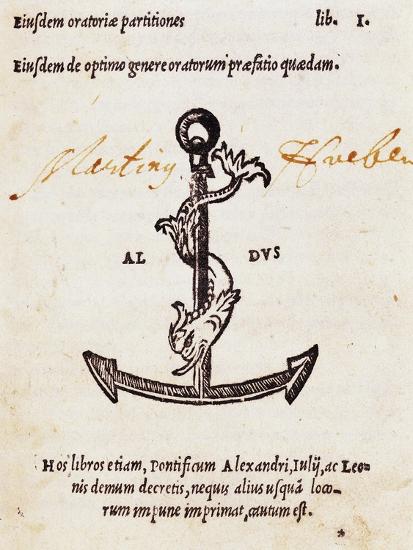 Eiusdem oratoriæ partitiones lib. I.
Eiusdem de optimo genere oratorum præfatio quædam.
Martiny Hveber
AL DVS
Hos libros etiam, Pontificum Alexandri, Iulij, ac Leo-
nis demum decretis, nequis alius usquã loco-
rum impune imprimat, cautum est.